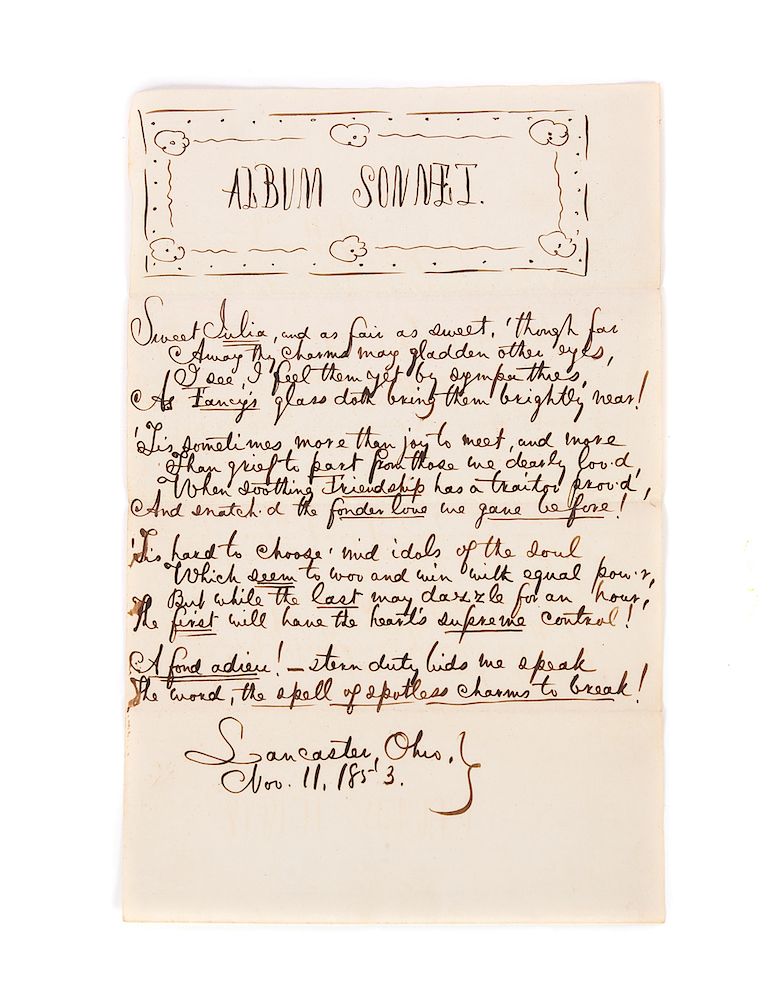 ALBUM SONNET.
Sweet Julia, and as fair as sweet, 'though far
Away thy charms may gladden other eyes,
I see, I feel them yet by sympathies,
As Fancy's glass doth bring them brightly near!
'Tis sometimes more than joy to meet, and more
Than grief to part from those we dearly lov'd,
When soothing Friendship has a traitor prov'd,
And snatch'd the fonder love we gave before!
'Tis hard to choose 'mid idols of the soul
Which seem to woo and win with equal pow'r,
But while the last may dazzle for an hour,
The first will have the heart's supreme control!
A fond adieu! – stern duty bids me speak
The word, the spell of spotless charms to break!
Lancaster, Ohio, }
Nov. 11, 1853.